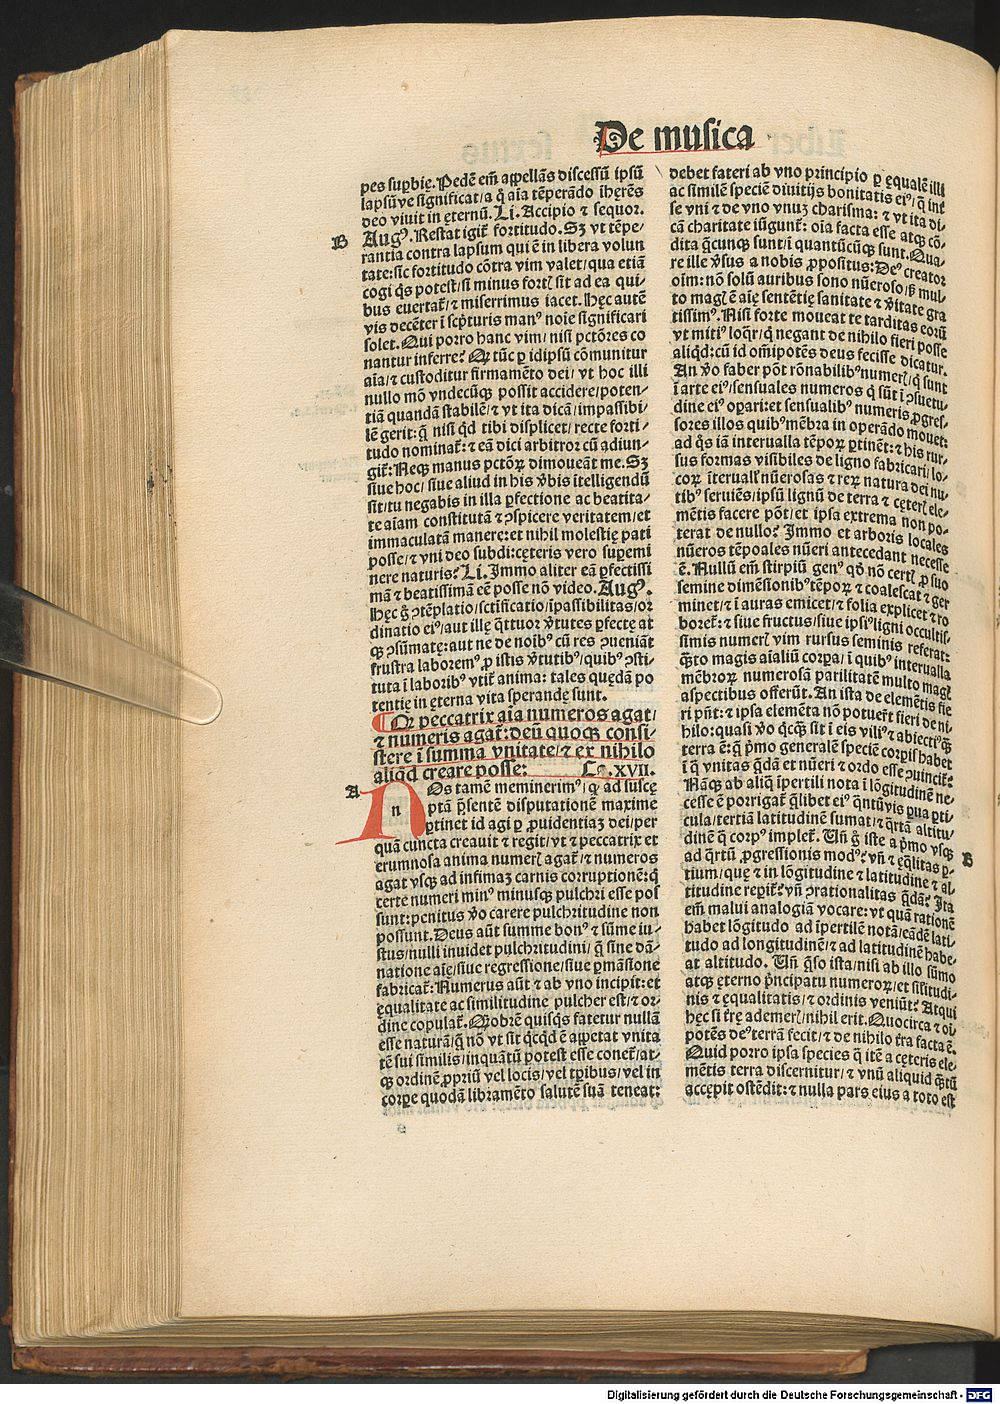 De musica
pes supbię. Pedē em̄ appellās discessū ipsū
lapsūve significat/a q̄ aīa tēperādo ihęrēs
deo viuit in ęternū. Li. Accipio ⁊ sequor.
B
Augꝰ. Restat igit̄ fortitudo. Sꝫ vt tēpe/
rantia contra lapsum qui ē in libera volun
tate: sic fortitudo cōtra vim valet/qua etiā
cogi q̄s potest/si minus fort̄ sit ad ea qui/
bus euertat̄/⁊ miserrimus iacet. Hęc autē
vis decēter ī scpturis manꝰ noīe significari
solet. Qui porro hanc vim/nisi pctōres co
nantur inferre? Qꝛ tūc ꝑ idipsū cōmunitur
aīa/⁊ custoditur firmamēto dei/vt hoc illi
nullo mō vndecūqꝫ possit accidere/poten/
tiā quandā stabilē/⁊ vt ita dicā/impassibi/
lē gerit: q̄ nisi qd tibi displicet/recte forti/
tudo nominat̄: ⁊ eā dici arbitror cū adiun/
git̄: Neqꝫ manus pctōꝝ dimoueāt me. Sꝫ
siue hoc/siue aliud in his v̄bis ītelligendū
sit/tu negabis in illa ꝑfectione ac beatita/
te aīam constitutā ⁊ ꝯspicere veritatem/et
immaculatā manere: et nihil molestię pati
posse/⁊ vni deo subdi: cęteris vero supemi
nere naturis? Li. Immo aliter eā ꝑfectissi
mā ⁊ beatissimā eē posse nō video. Augꝰ.
Hęc g̊ ꝯtēplatio/sctificatio/īpassibilitas/or
dinatio eiꝰ/aut illę q̄ttuor v̄tutes ꝑfectę at
qꝫ ꝯsūmatę: aut ne de noībꝰ cū res ꝯueniāt
frustra laboremꝰ, ꝓ istis v̄tutibꝰ/quibꝰ ꝯsti
tuta ī laboribꝰ vtit̄ anima: tales quędā po
tentię in ęterna vita sperandę sunt.
Qꝛ peccatrix aīa numeros agat/
⁊ numeris agat̄: deū quoqꝫ consi/
stere ī summa vnitate/⁊ ex nihilo
aliqd creare posse: Ca. XVII.
A
n
NOs tamē meminerimꝰ/qꝛ ad suscę
ptā pn̄sentē disputationē maxime
ptinet id agi ꝑ prouidentiaꝫ dei/per
quā cuncta creauit ⁊ regit/vt ⁊ peccatrix et
erumnosa anima numer̄ agat̄/⁊ numeros
agat vsqꝫ ad infimaꝫ carnis corruptionē: q̄
certe numeri minꝰ minusqꝫ pulchri esse pos
sunt: penitus v̄o carere pulchritudine non
possunt. Deus aūt summe bonꝰ ⁊ sūme iu/
stus/nulli inuidet pulchritudini/q̄ siue dā/
natione aīę/siue regressione/siue pmāsione
fabricat̄: Numerus aūt ⁊ ab vno incipit: et
ęqualitate ac similitudine pulcher est/⁊ or/
dine copulat̄. Qꝛobrē quisqs fatetur nullā
esse naturā/q̄ nō vt sit qcqd ē appetat vnita
tē sui similis/inquātū potest esse conet̄/at/
qꝫ ordinē ꝓpriū vel locis/vel tpibus/vel in
corpe quodā libramēto salutē suā teneat:
debet fateri ab vno principio ꝑ ęqualē illi
ac similē speciē diuitijs bonitatis eiꝰ/q̄ int̄
se vni ⁊ de vno vnuꝫ charisma: ⁊ vt ita di/
cā charitate iūgunt̄: oīa facta esse atqꝫ cō/
dita q̄cunqꝫ sunt/ī quantūcūqꝫ sunt. Qua/
re ille v̄sus a nobis ꝓpositus: Deꝰ creator
oīm: nō solū auribus sono nūeroso/sꝫ mul/
to magꝭ ē aīę sententię sanitate ⁊ v̄itate gra
tissimꝰ. Nisi forte moueat te tarditas eorū
vt mitiꝰ loqr/q̄ negant de nihilo fieri posse
aliqd: cū id om̄ipotēs deus fecisse dicatur.
An v̄o faber pōt rōnabilibꝰ numer̄/q̄ sunt
ī arte eiꝰ/sensuales numeros q̄ sūt ī ꝯsuetu/
dine eiꝰ opari: et sensualibꝰ numeris ꝓgres/
sores illos quibꝰ mēbra in operādo mouet:
ad q̄s iā interualla tēpoꝝ ptinēt: ⁊ his rur/
sus formas visibiles de ligno fabricari/lo/
coꝝ īteruall̄ nūerosas ⁊ reꝝ natura dei nu/
tibꝰ seruiēs/ipsū lignū de terra ⁊ cęter̄ ele/
mētis facere pōt/et ipsa extrema non po/
terat de nullo? Immo et arboris locales
nūeros tēpoales nūeri antecedant necesse
ē. Nullū em̄ stirpiū genꝰ qd nō cert̄ ꝓ suo
semine dimēsionibꝰ tēpoꝝ ⁊ coalescat ⁊ ger
minet/⁊ ī auras emicet/⁊ folia explicet ⁊ ro
boret̄: ⁊ siue fructus/siue ipsiꝰ ligni occultis/
simis numer̄ vim rursus seminis referat:
q̄to magis aīaliū corpa/ī quibꝰ interualla
mēbroꝝ numerosā parilitatē multo magꝭ
aspectibus offerūt. An ista de elemētis fie
ri pn̄t: ⁊ ipsa elemēta nō potuer̄t fieri de ni/
hilo: quasi v̄o qcqꝫ sit ī eis viliꝰ ⁊ abiectiꝰ q̄
terra ē: q̄ pmo generalē speciē corpis habet
ī q̄ vnitas q̄dā et nūeri ⁊ ordo esse ꝯuincit̄:
Nāqꝫ ab aliq īpertili nota ī lōgitudinē ne/
cesse ē porrigat̄ q̄libet eiꝰ q̄ntūvis pua pti/
cula/tertiā latitudinē sumat/⁊ q̄rtā altitu/
dinē q̄ corpꝰ implet̄. Vn̄ g̊ iste a pmo vsqꝫ
B
ad q̄rtū ꝓgressionis modꝰ? vn̄ ⁊ ęq̄litas p/
tium/quę ⁊ in lōgitudine ⁊ latitudine ⁊ al/
titudine repit̄? vn̄ ꝯrationalitas q̄dā? Ita
em̄ malui analogiā vocare: vt quā rationē
habet lōgitudo ad īpertilē notā/eādē lati/
tudo ad longitudinē/⁊ ad latitudinē habe/
at altitudo. Vn̄ q̄so ista/nisi ab illo sūmo
atqꝫ ęterno pncipatu numeroꝝ/et sil̄itudi/
nis ⁊ ęqualitatis/⁊ ordinis veniūt? Atqui
hęc si t̄rę ademer̄/nihil erit. Quocirca ⁊ oī/
potēs deꝰ terrā fecit/⁊ de nihilo t̄ra facta ē.
Quid porro ipsa species q̄ itē a cęteris ele/
mētis terra discernitur/⁊ vnū aliquid q̄tū
accępit ostēdit: ⁊ nulla pars eius a toto est
Digitalisierung gefördert durch die Deutsche Forschungsgemeinschaft - DFG